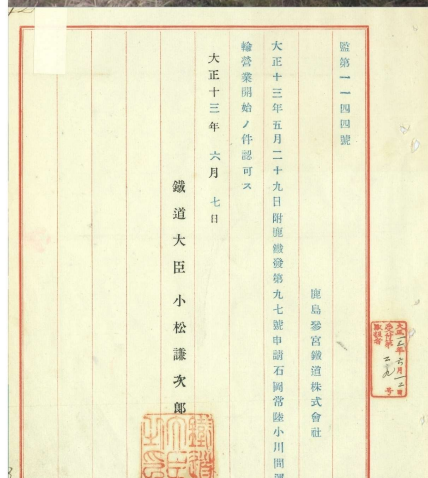 監第一一四四號
鹿島參宮鐵道株式會社
大正十三年五月二十九日附鹿鐵發第九七號申請石岡常陸小川間
輸營業開始ノ件認可ス
大正十三年六月七日
鐵道大臣 小松謙次郎